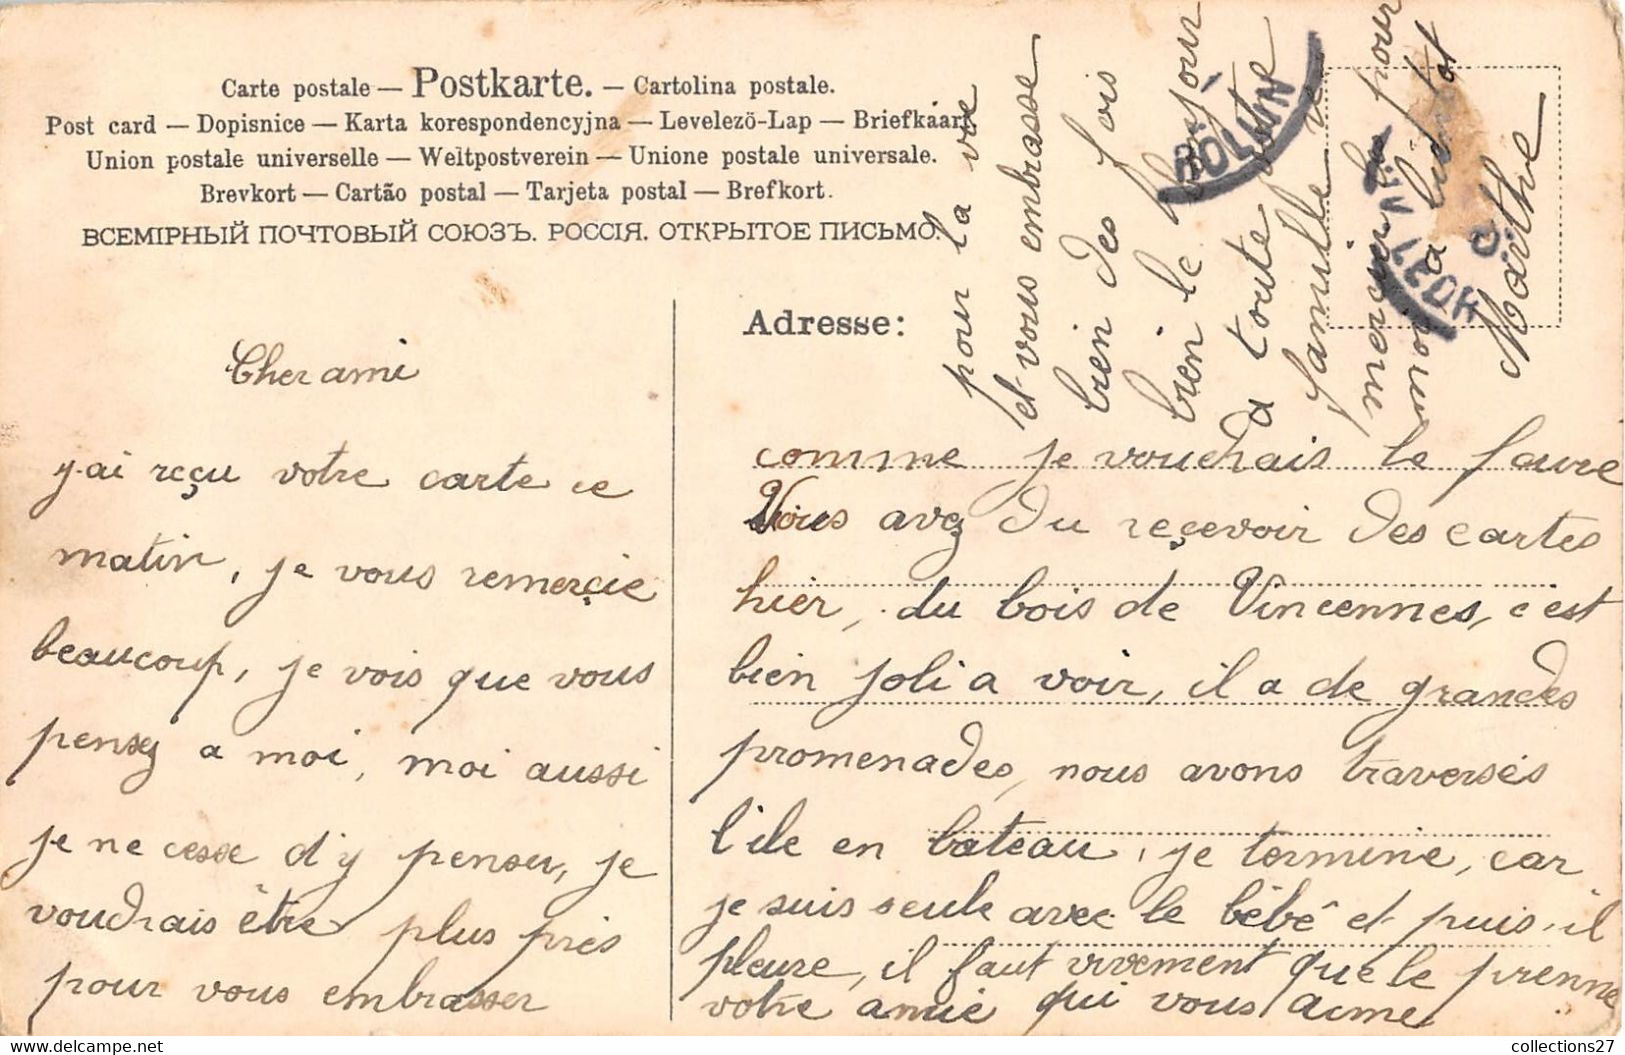 Carte postale — Postkarte. — Cartolina postale.
Post card — Dopisnice — Karta korespondencyjna — Levelezö-Lap — Briefkaart
Union postale universelle — Weltpostverein — Unione postale universale.
Brevkort — Cartão postal — Tarjeta postal — Brefkort.
ВСЕМІРНЫЙ ПОЧТОВЫЙ СОЮЗЪ. РОССІЯ. ОТКРЫТОЕ ПИСЬМО.
Adresse:
Cher ami
j-ai reçu votre carte ce
matin, je vous remerçie
beaucoup, je vois que vous
pensez a moi, moi aussi
je ne cesse d'y penser, je
voudrais être plus près
pour vous embrasser
comme je voudrais le faire
Vous avez du reçevoir des cartes
hier, du bois de Vincennes, c'est
bien joli a voir, il a de grandes
promenades, nous avons traversés
l'ile en bateau, je termine, car
je suis seule avec le bébé et puis il
pleure, il faut vivement que le prenne
votre amie qui vous aime
pour la vie
et vous embrasse
bien des fois
bien le bonjour
a toute votre
famille
merci pour
moi a bientot
Marthe